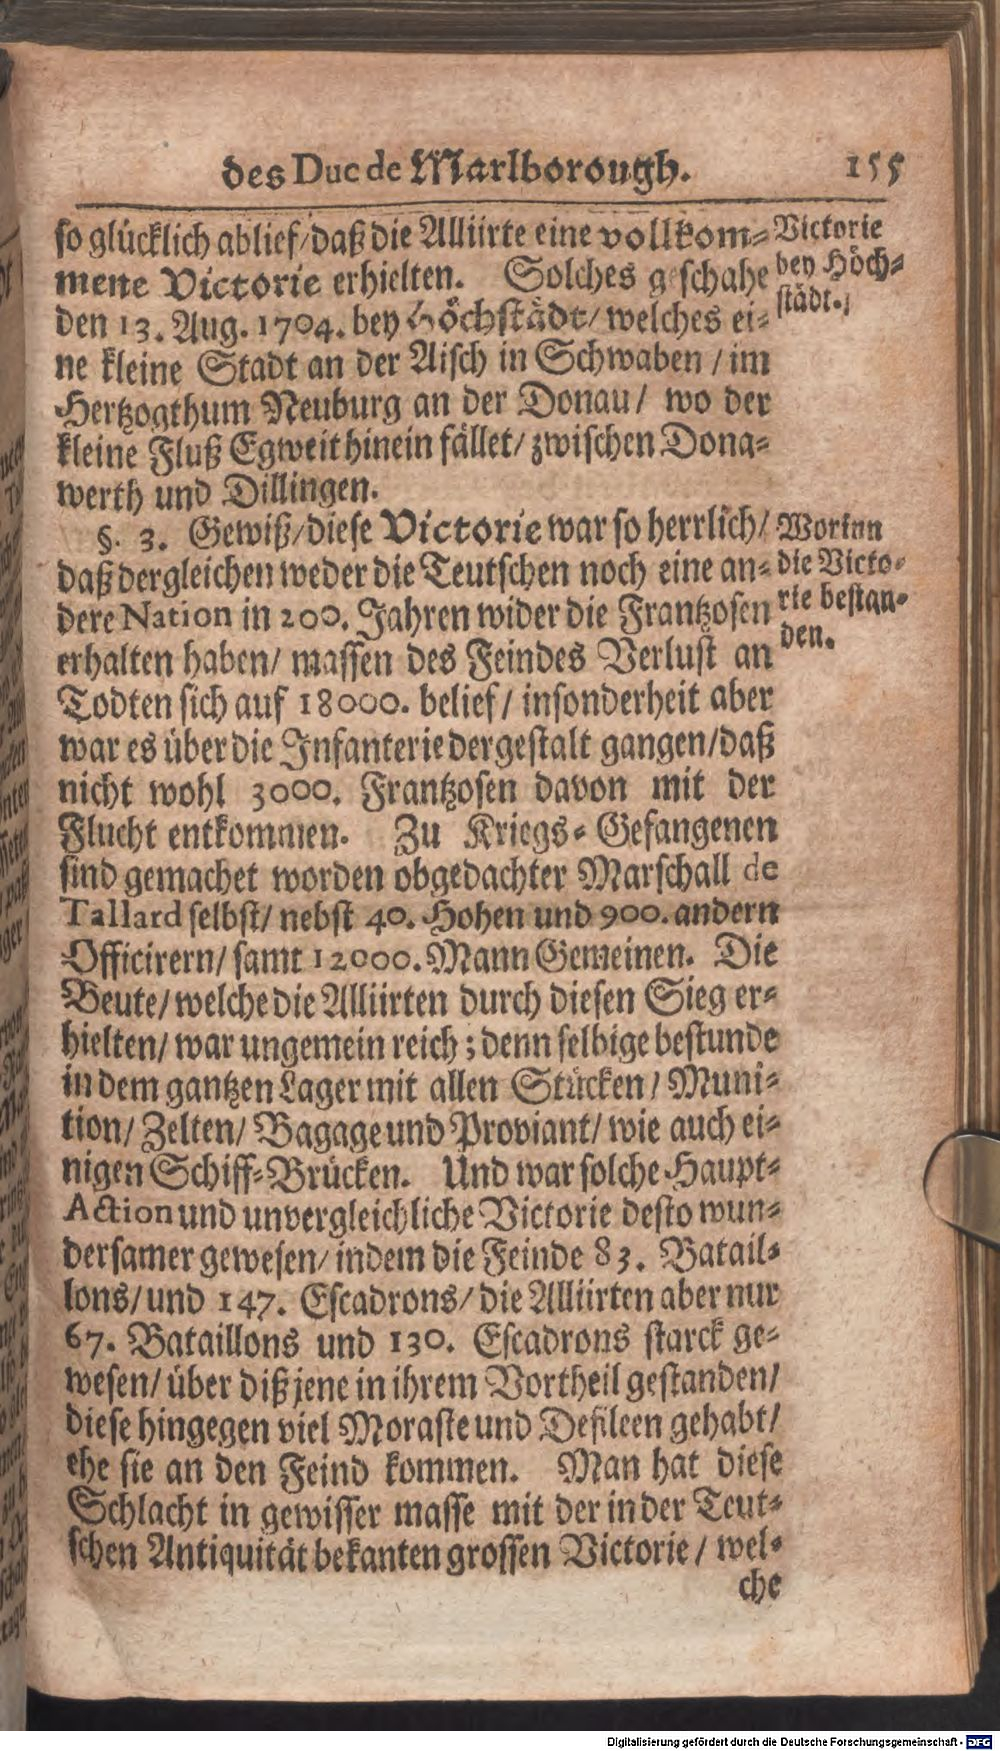 des Duc de Marlborough. 155
so glücklich ablief/daß die Alliirte eine vollkom-
mene Victorie erhielten. Solches geschahe
den 13. Aug. 1704. bey Höchstädt/welches ei-
ne kleine Stadt an der Aisch in Schwaben / im
Hertzogthum Neuburg an der Donau/ wo der
kleine Fluß Egweit hinein fället/ zwischen Dona-
werth und Dillingen.
Victorie
bey Höch-
städt.
§. 3. Gewiß/diese Victorie war so herrlich/
daß dergleichen weder die Teutschen noch eine an-
dere Nation in 200. Jahren wider die Frantzosen
erhalten haben/ massen des Feindes Verlust an
Todten sich auf 18000. belief/ insonderheit aber
war es über die Infanterie dergestalt gangen/daß
nicht wohl 3000. Frantzosen davon mit der
Flucht entkommen. Zu Kriegs-Gefangenen
sind gemachet worden obgedachter Marschall de
Tallard selbst/ nebst 40. Hohen und 900. andern
Officirern/ samt 12000. Mann Gemeinen. Die
Beute/welche die Alliirten durch diesen Sieg er-
hielten/ war ungemein reich; denn selbige bestunde
in dem gantzen Lager mit allen Stücken/ Muni-
tion/ Zelten/ Bagage und Proviant/ wie auch ei-
nigen Schiff-Brücken. Und war solche Haupt-
Action und unvergleichliche Victorie desto wun-
dersamer gewesen/ indem die Feinde 83. Batail-
lons/und 147. Escadrons/ die Alliirten aber nur
67. Bataillons und 130. Escadrons starck ge-
wesen/ über diß jene in ihrem Vortheil gestanden/
diese hingegen viel Moraste und Defileen gehabt/
ehe sie an den Feind kommen. Man hat diese
Schlacht in gewisser masse mit der in der Teut-
schen Antiquität bekanten grossen Victorie / wel-
che
Worinn
die Victo-
rie bestan-
den.
Digitalisierung gefördert durch die Deutsche Forschungsgemeinschaft - DFG